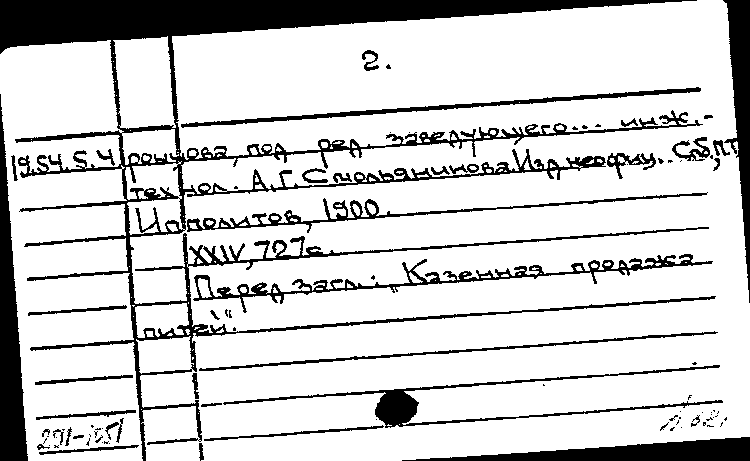 2.
19.54.5.4 ронцова, под ред. заведующего... инж.-
технол. А.Г. Смольянинова. Изд. неофиц. СПб, П.П.
Ипполитов, 1900.
XXIV, 727 с.
Перед загл.: „Казенная продажа
питей".
291-1551